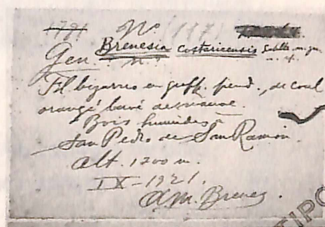 1791 Nº 117
Gen. Brenesia costaricensis Schltr. n. gn.
Fl bizarres en , de coul
orangé lavé de mauve.
Bois humides à
San Pedro de San Ramón.
Alt. 1200 m.
IX - 1921.
A.M. Brenes.
TIPO